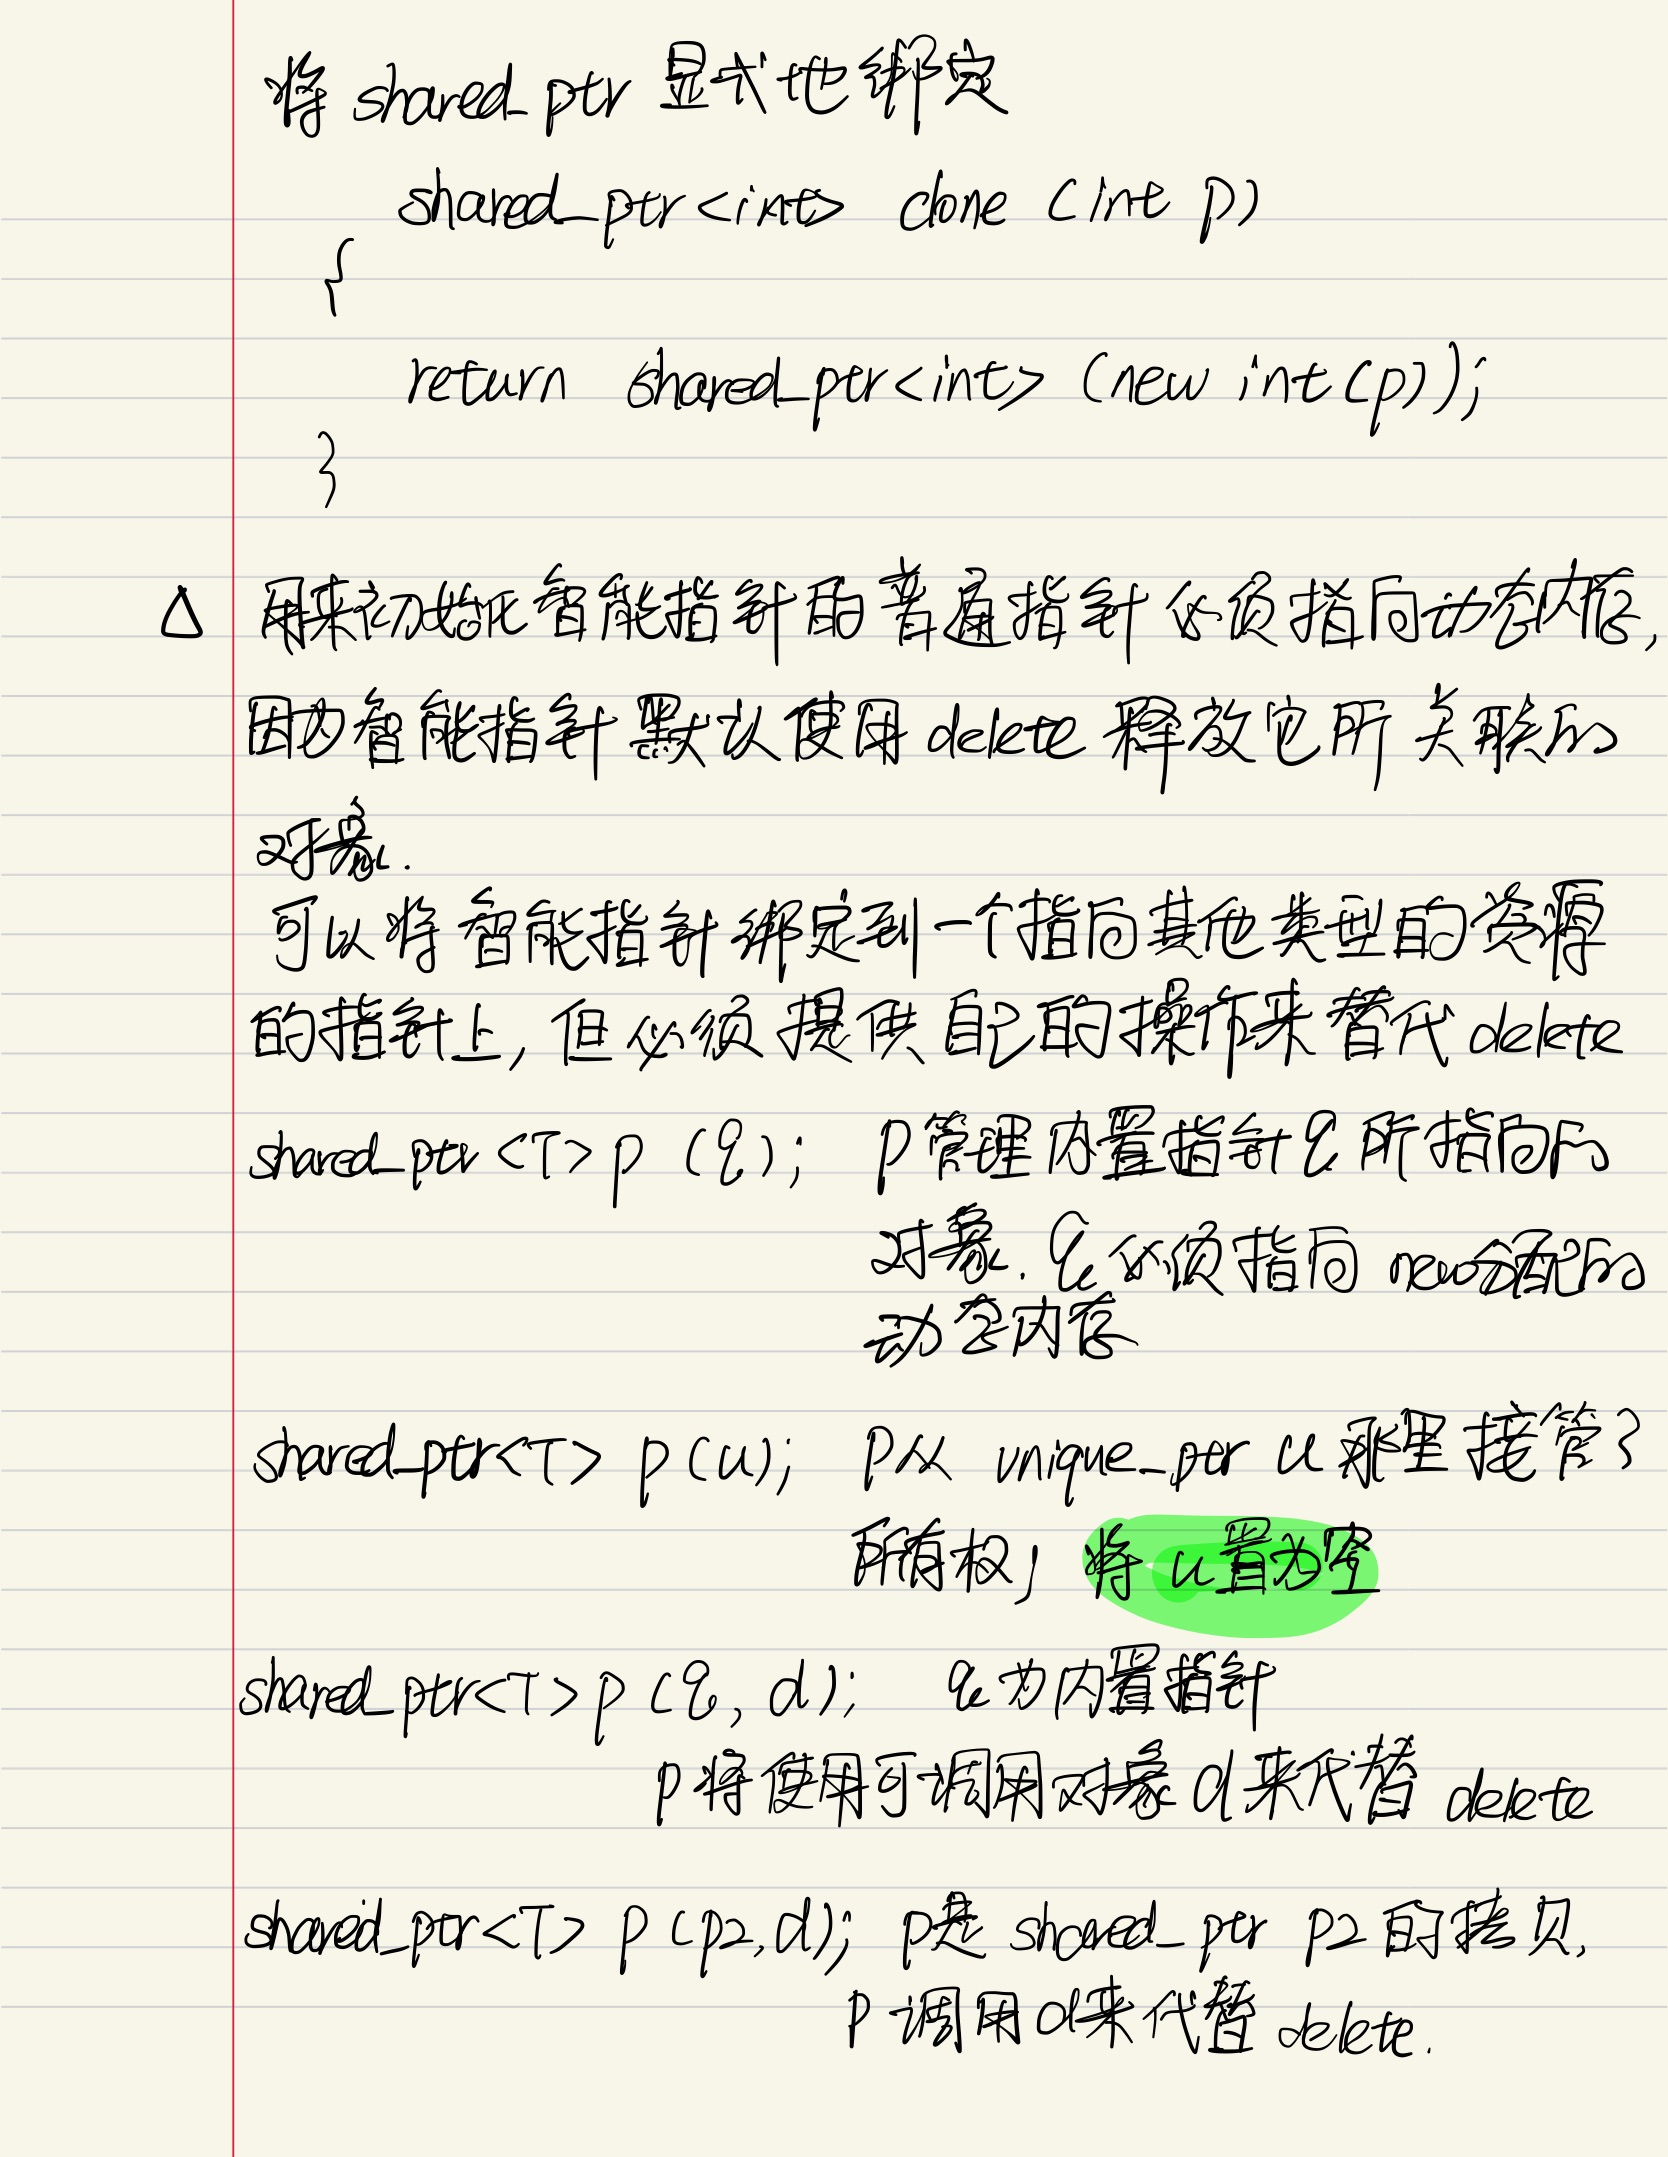 将 shared_ptr 显式地绑定
shared_ptr<int> clone (int p)
{
return shared_ptr<int> (new int(p));
}
△ 用来初始化智能指针的普通指针必须指向动态内存,
因为智能指针默认使用delete释放它所关联的
对象.
可以将智能指针绑定到一个指向其他类型的资源
的指针上,但必须提供自己的操作来替代delete
shared_ptr<T> p (q); p管理内置指针q所指向的
对象. q必须指向new分配的
动态内存
shared_ptr<T> p(u); p从 unique_ptr u 那里接管了
所有权; 将u置为空
shared_ptr<T> p (q, d); q为内置指针
p将使用可调用对象d来代替 delete
shared_ptr<T> p (p2,d); p是 shared_ptr p2的拷贝,
p调用d来代替delete.